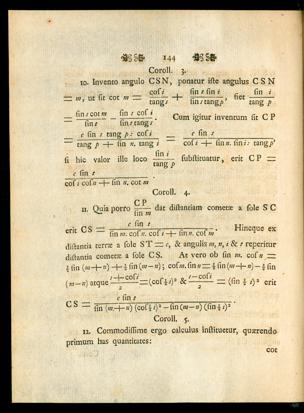 144
Coroll. 3.
10. Invento angulo CSN, ponatur iste angulus CSN
= m, ut sit cot m = cos i / tang s + sin s sin i / sin s tang p, fiet sin i / tang p
= sin s cot m / sin s − sin s cos i / sin s tang s. Cum igitur inventum sit CP
= c sin s tang p : cos i / tang p + sin n. tang i = c sin s / cos i + sin n. sin i : tang p'
si hic valor illo loco sin i / tang p substituatur, erit CP =
c sin s / cos i cos n + sin n. cot m.
Coroll. 4.
11. Quia porro CP / sin m dat distantiam cometæ a sole SC
erit CS = c sin s / sin m. cos n. cos i + sin n. cos m. Hincque ex
distantia terræ a sole ST = c, & angulis m, n, i & s reperitur
distantia cometæ a sole CS. At vero ob sin m. cos n =
½ sin (m + n) + ½ sin (m − n); cos m. sin n = ½ sin (m + n) − ½ sin
(m − n) atque 1 + cos i / 2 = (cos ½ i)² & 1 − cos i / 2 = (sin ½ i)² erit
CS = c sin s / sin (m + n) (cos ½ i)² − sin (m − n) (sin ½ i)².
Coroll. 5.
12. Commodissime ergo calculus instituetur, quærendo
primum has quantitates:
cot